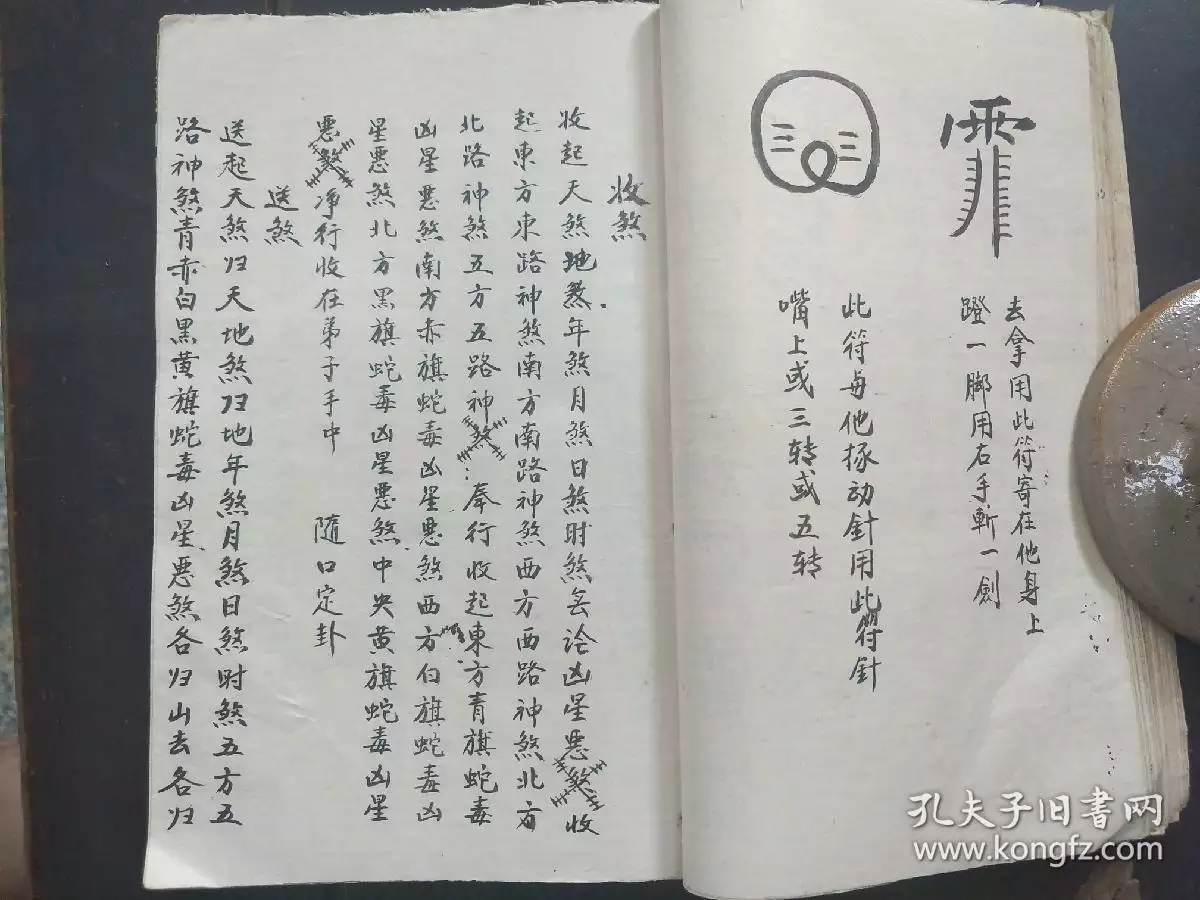 去拿用此符寄在他身上
蹬一脚用右手斬一劍
此符每他掾动針用此符針
嘴上或三转或五转
收煞
收起天煞地煞年煞月煞日煞时煞凶星恶煞收
起東方東路神煞南方南路神煞西方西路神煞北方
北路神煞五方五路神煞奉行收起東方青旗蛇毒
凶星恶煞南方赤旗蛇毒凶星恶煞西方白旗蛇毒凶
星恶煞北方黑旗蛇毒凶星恶煞中央黄旗蛇毒凶星
恶煞净行收在弟子手中 隨口定卦
送煞
送起天煞归天地煞归地年煞月煞日煞时煞五方五
路神煞青赤白黑黄旗蛇毒凶星恶煞各归山去各归
孔夫子旧书网
www.kongfz.com